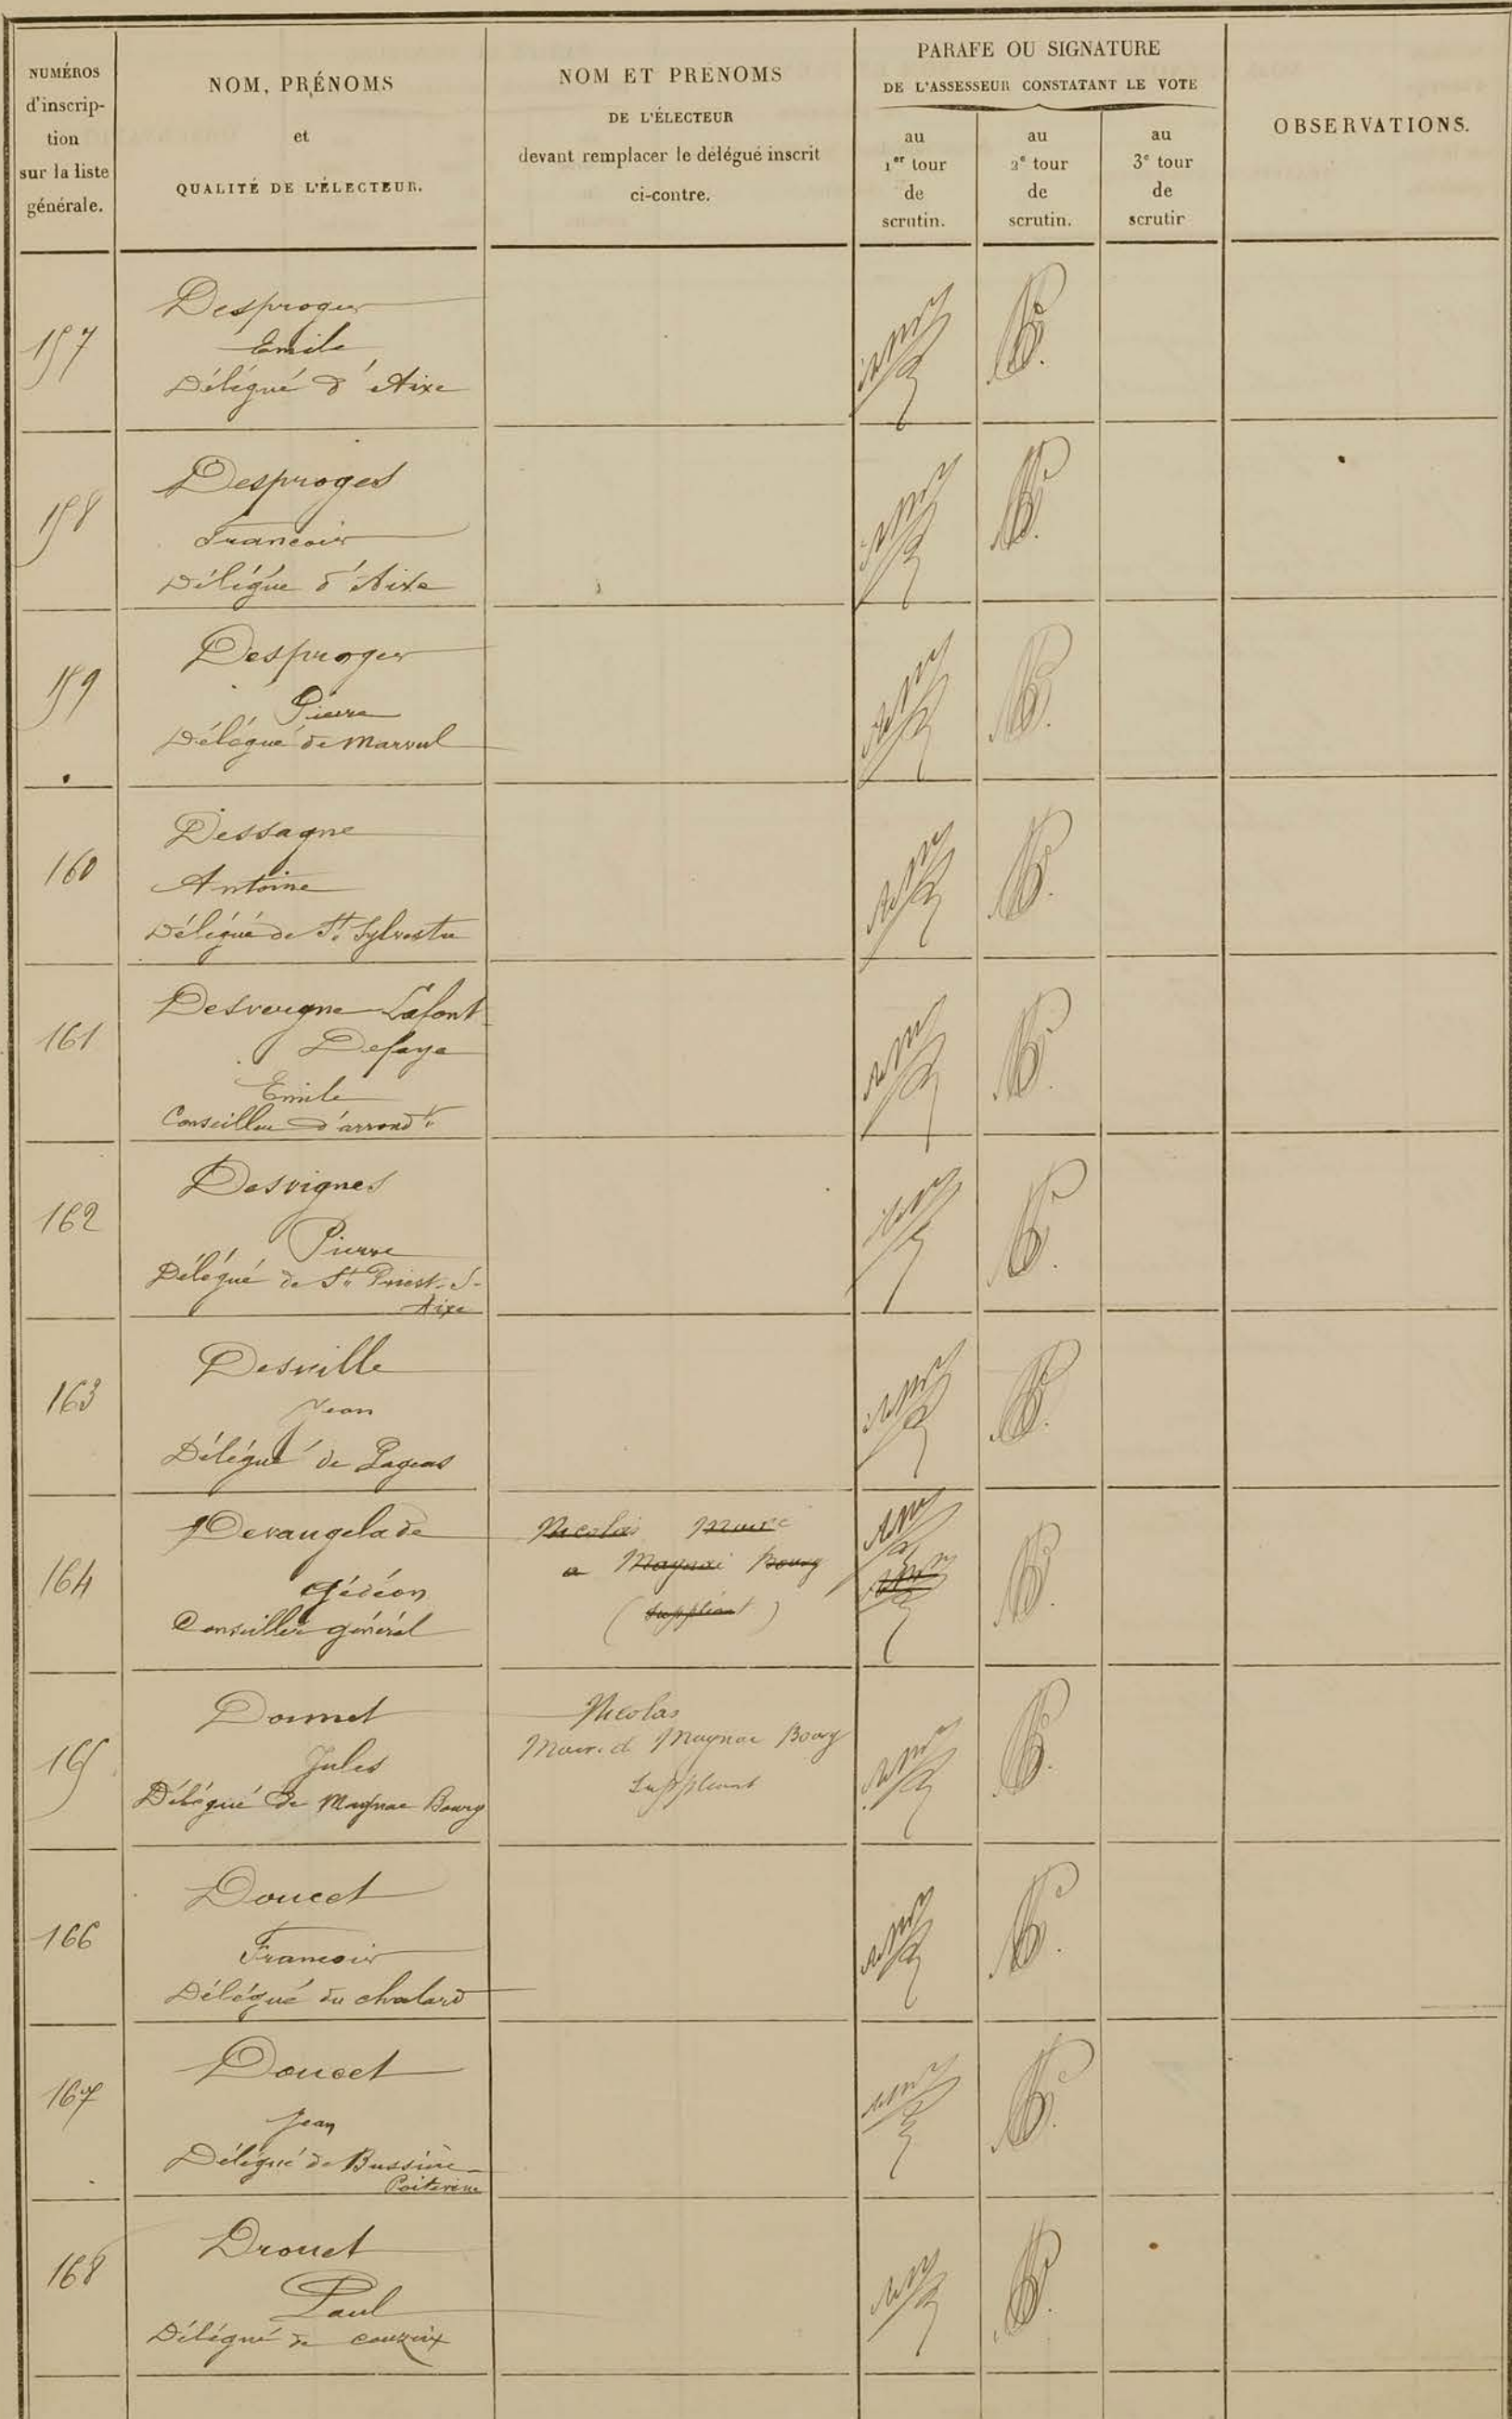 NUMÉROS
d'inscrip-
tion
sur la liste
générale.
NOM, PRÉNOMS
et
QUALITÉ DE L'ÉLECTEUR.
NOM ET PRENOMS
DE L'ÉLECTEUR
devant remplacer le délégué inscrit
ci-contre.
PARAFE OU SIGNATURE
DE L'ASSESSEUR CONSTATANT LE VOTE
au
1er tour
de
scrutin.
au
2e tour
de
scrutin.
au
3e tour
de
scrutir
OBSERVATIONS.
157
Desproges
Emile
Délégué d'Aixe
158
Desproges
Francois
Délégue d'Aixe
159
Desproges
Pierre
Délégué de Marval
160
Dessagne
Antoine
Délégué de St. Sylvestre
161
Desvergne Lafont
Defaye
Emile
Conseiller d'arrondt
162
Desvignes
Pierre
Délégué de St Priest-s-
Aixe
163
Desville
Jean
Délégué de Pageas
164
Devaugelade
Gédéon
Conseiller général
Nicolas Maire
a Magnac Bourg
(suppléant)
165
Doumet
Jules
Délégué de Magnac Bourg
Nicolas
Maire d Magnac Bourg
Suppleant
166
Doucet
Francois
Délégué du chalard
167
Doucet
Jean
Délégué de Bussière
Poitevine
168
Drouet
Paul
Délégué de couzeix